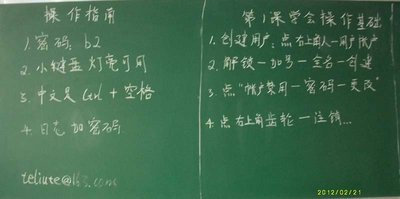 操作指南
1. 密码：b2
2. 小键盘灯亮可用
3. 中文是 Ctrl + 空格
4. 日志加密码
teliute@163.com
第1课学会操作基础
1. 创建用户：点右上角人—用户帐户
2. 解锁—加号—全名—创建
3. 点“帐户禁用—密码—更改”
4. 点右上角齿轮—注销...
2012/02/21